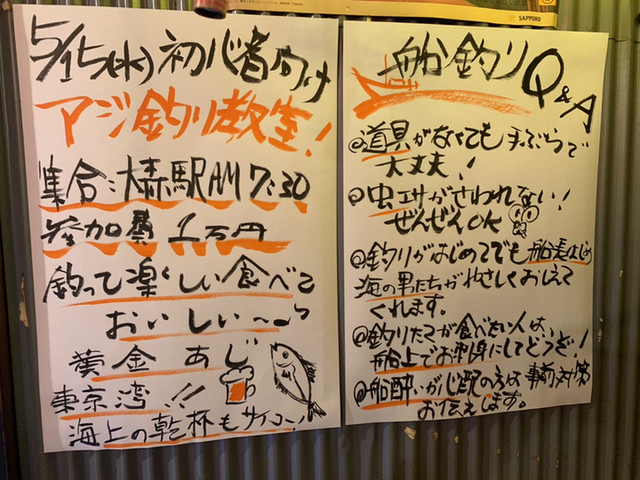 SAPPORO
5/15(水)初心者向け
アジ釣り教室!
集合:大森駅AM7:30
参加費 1万円
釣って楽しい食べて
おいしい〜
黄金あじ
東京湾!!
海上の乾杯もサイコー!
船釣りQ&A
◎道具がなくても手ぶらで
大丈夫!
◎虫エサがさわれない!
ぜんぜんOK
◎釣りがはじめてでも船長はじめ
海の男たちがやさしくおしえて
くれます。
◎釣りたてが食べたい人は、
船上でお刺身にしてどうぞ!
◎船酔いが心配の方は事前対策
お伝えします。